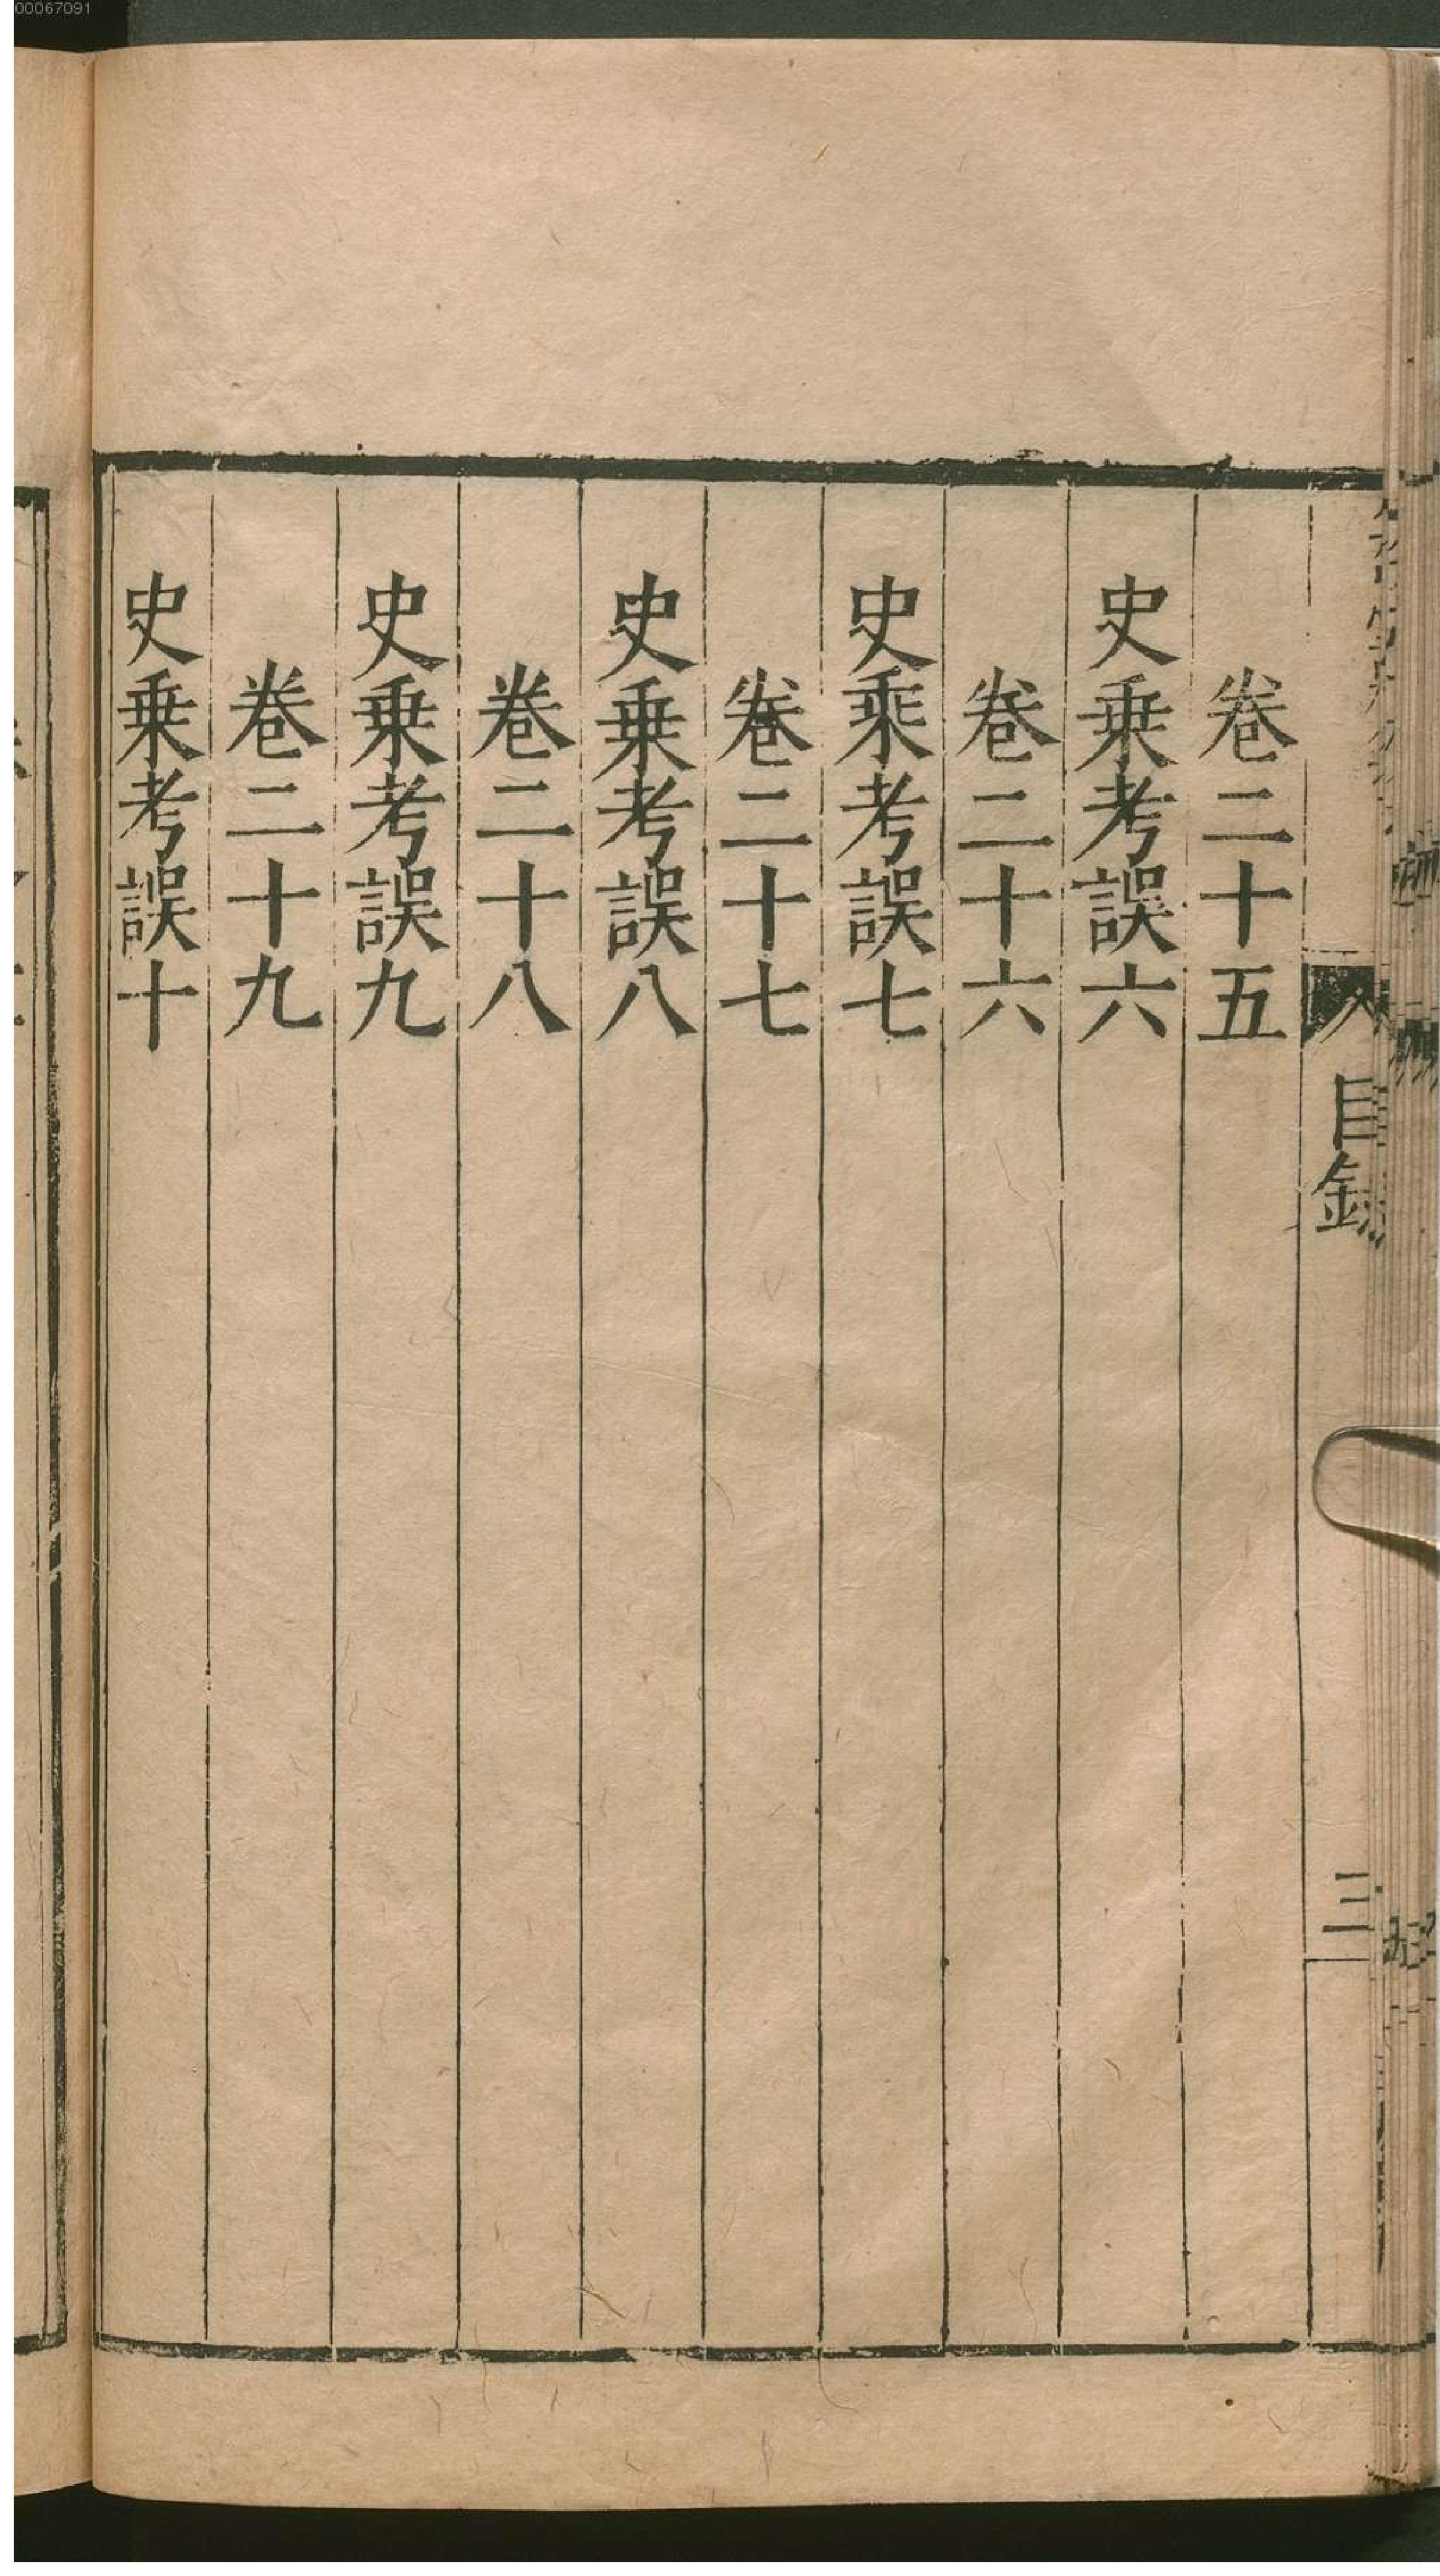 卷二十五
史乗考誤六
卷二十六
史乘考誤七
卷二十七
史乗考誤八
卷二十八
史乗考誤九
卷二十九
史乗考誤十
目錄
三
00067091